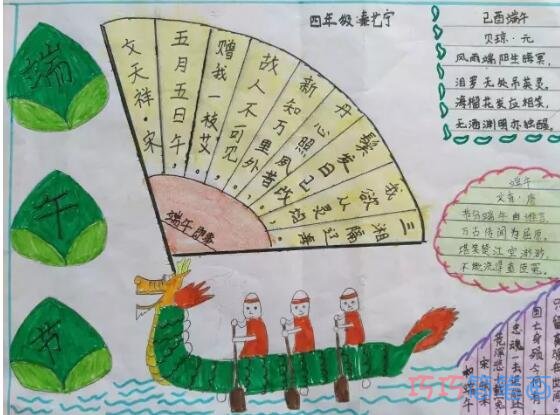 四年级
端
午
节
文天祥·宋
五月五日午,
赠我一枝艾,
故人不可见,
新知万里外
丹心照夙昔
鬓发日已改
我欲从
三湘隔辽海
端午即事
己酉端午
贝琼·元
风雨端阳生晦冥,
汨罗无处吊英灵,
海榴花发应相笑,
无酒渊明亦独醒
端午
文秀·唐
节分端午自谁言
万古传闻为屈原,
堪笑楚江空渺渺
不能洗得直臣冤
忠魂一去讵能
身殒今何有
宋